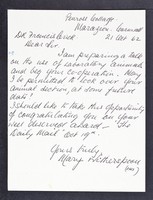 Penrose Cottage
Marazion, Cornwall
21 Oct 62
Dr Francis Crick
Dear Sir
I am preparing a talk
on the use of laboratory animals
and beg your co-operation. May
I be permitted to look over your
animal section, at some future
date?
I should like to take this opportunity
of congratulating you on your
well deserved award - The
Daily Mail Oct 19th.
Yours truly
Mary
(Mrs)